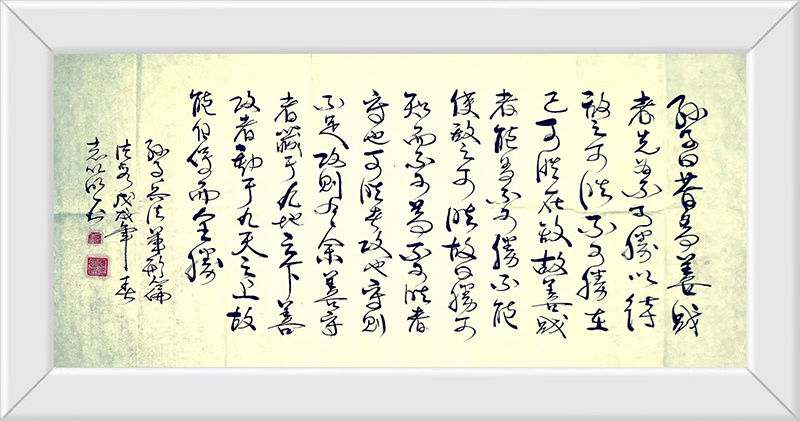 孙子曰昔之善战
者先为不可勝以待
敌之可勝不可勝在
己可勝在敌故善战
者能为不可勝不能
使敌之可勝故曰勝可
知而不可为不可勝者
守也可勝者攻也守则
不足攻则有余善守
者藏于九地之下善
攻者動于九天之上故
能自保而全勝
孙子兵法军形篇
戊戌年春